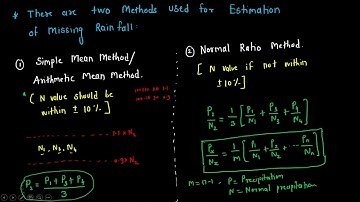 * There are two Methods used for Estimation
of Missing Rainfall:
① Simple Mean Method/
Arithmetic Mean Method.
[ N value should be
within ± 10 %. ]
1.1 × N₂
N₁, N₃, N₄
0.9 × N₂
P₂ = P₁ + P₃ + P₄ / 3
② Normal Ratio Method.
[ N value if not within
± 10 %. ]
P₂/N₂ = 1/3 [ P₁/N₁ + P₃/N₃ + P₄/N₄ ]
Pₓ/Nₓ = 1/M [ P₁/N₁ + P₂/N₂ + ... Pₙ/Nₙ ]
M = n-1 P = Precipitation
N = Normal precipitation